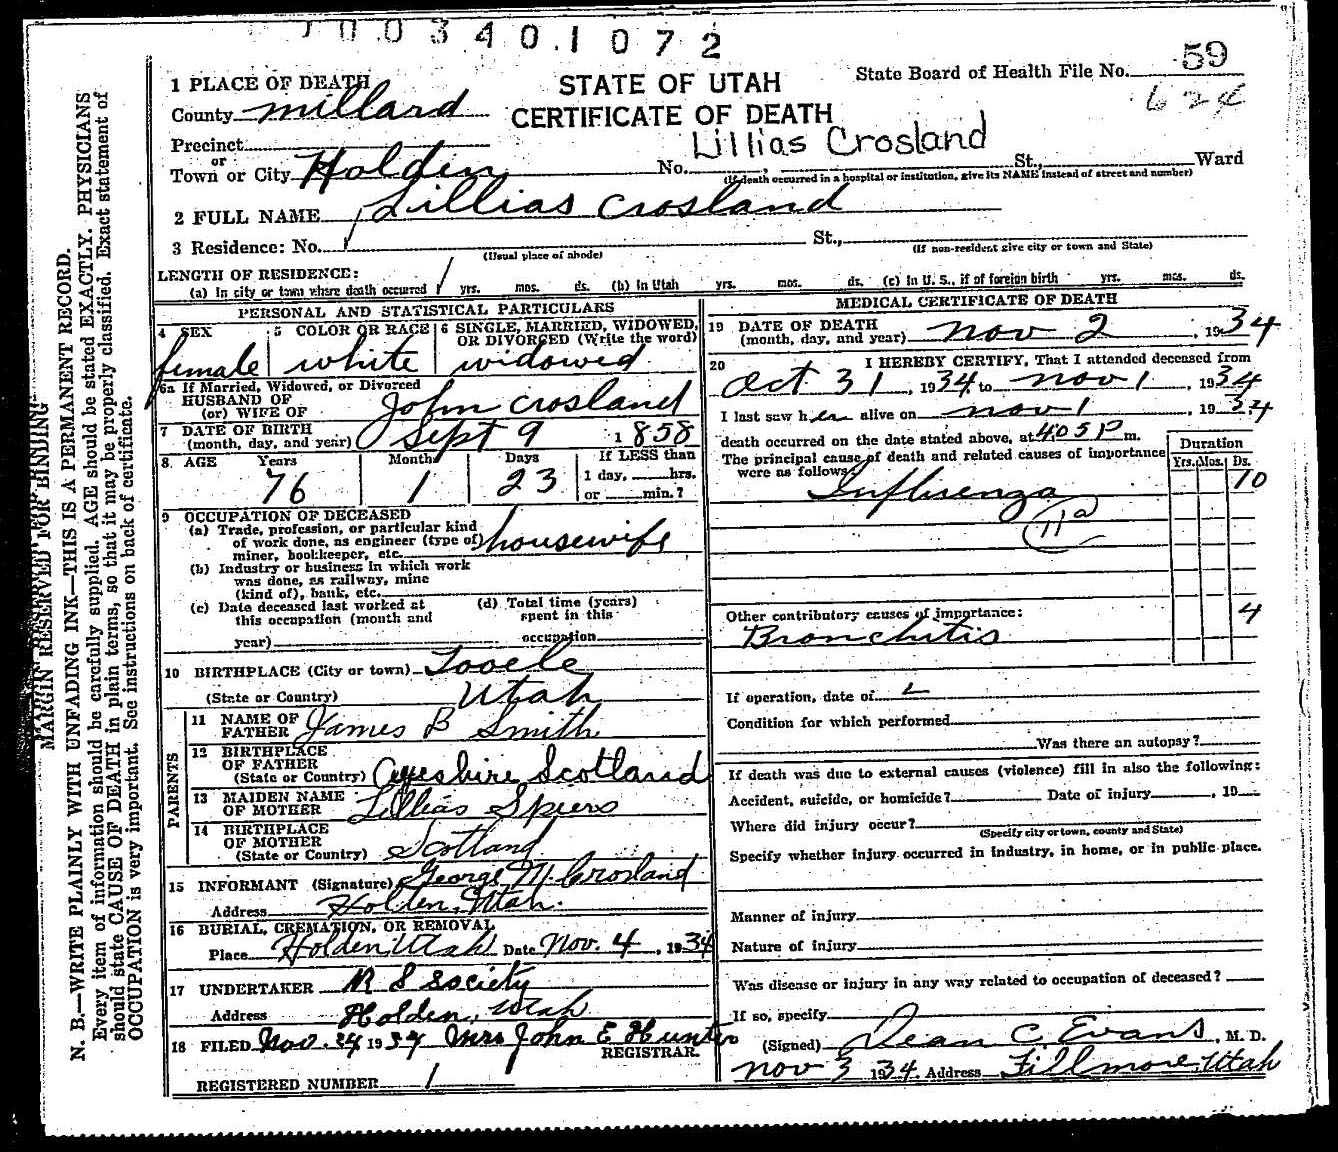 003401072
59
State Board of Health File No.
624
1 PLACE OF DEATH
STATE OF UTAH
CERTIFICATE OF DEATH
County Millard
Precinct
or
Town or City Holden
Lillias Crosland
No. St., Ward
(If death occurred in a hospital or institution, give its NAME instead of street and number)
2 FULL NAME Lillias Crosland
3 Residence: No. St.,
(Usual place of abode) (If non-resident give city or town and State)
LENGTH OF RESIDENCE:
(a) In city or town where death occurred yrs. mos. ds. (b) In Utah yrs. mos. ds. (c) In U. S., if of foreign birth yrs. mos. ds.
PERSONAL AND STATISTICAL PARTICULARS
4 SEX 5 COLOR OR RACE 6 SINGLE, MARRIED, WIDOWED, OR DIVORCED (Write the word)
female white widowed
6a If Married, Widowed, or Divorced
HUSBAND OF
(or) WIFE OF John Crosland
7 DATE OF BIRTH
(month, day, and year) Sept 9 1858
8 AGE Years Months Days If LESS than
1 day, hrs.
or min.?
76 1 23
9 OCCUPATION OF DECEASED
(a) Trade, profession, or particular kind
of work done, as engineer (type of)
miner, bookkeeper, etc. housewife
(b) Industry or business in which work
was done, as railway, mine
(kind of), bank, etc.
(c) Date deceased last worked at
this occupation (month and
year)
(d) Total time (years)
spent in this
occupation
10 BIRTHPLACE (City or town) Tooele
(State or Country) Utah
PARENTS
11 NAME OF
FATHER James B Smith
12 BIRTHPLACE
OF FATHER
(State or Country) Ayeshire Scotland
13 MAIDEN NAME
OF MOTHER Lillias Spiers
14 BIRTHPLACE
OF MOTHER
(State or Country) Scotland
15 INFORMANT (Signature) George M. Crosland
Address Holden, Utah.
16 BURIAL, CREMATION, OR REMOVAL
Place Holden Utah Date Nov. 4, 1934
17 UNDERTAKER R S Society
Address Holden, Utah
18 FILED Nov. 24 1934 Mrs John E Hunter
REGISTRAR.
REGISTERED NUMBER 1
MEDICAL CERTIFICATE OF DEATH
19 DATE OF DEATH
(month, day, and year) Nov 2, 1934
20 I HEREBY CERTIFY, That I attended deceased from
Oct 31, 1934 to Nov 1, 1934
I last saw her alive on Nov 1, 1934
death occurred on the date stated above, at 405 P m.
The principal cause of death and related causes of importance
were as follows:
Duration
Yrs. Mos. Ds.
Influenza 10
11a
Other contributory causes of importance: 4
Bronchitis
If operation, date of
Condition for which performed
Was there an autopsy?
If death was due to external causes (violence) fill in also the following:
Accident, suicide, or homicide? Date of injury , 19
Where did injury occur?
(Specify city or town, county and State)
Specify whether injury occurred in industry, in home, or in public place.
Manner of injury
Nature of injury
Was disease or injury in any way related to occupation of deceased?
If so, specify
(Signed) Dean C. Evans, M. D.
Nov 3 1934. Address Fillmore, Utah
MARGIN RESERVED FOR BINDING
N. B.—WRITE PLAINLY WITH UNFADING INK—THIS IS A PERMANENT RECORD.
Every item of information should be carefully supplied. AGE should be stated EXACTLY. PHYSICIANS
should state CAUSE OF DEATH in plain terms, so that it may be properly classified. Exact statement of
OCCUPATION is very important. See instructions on back of certificate.